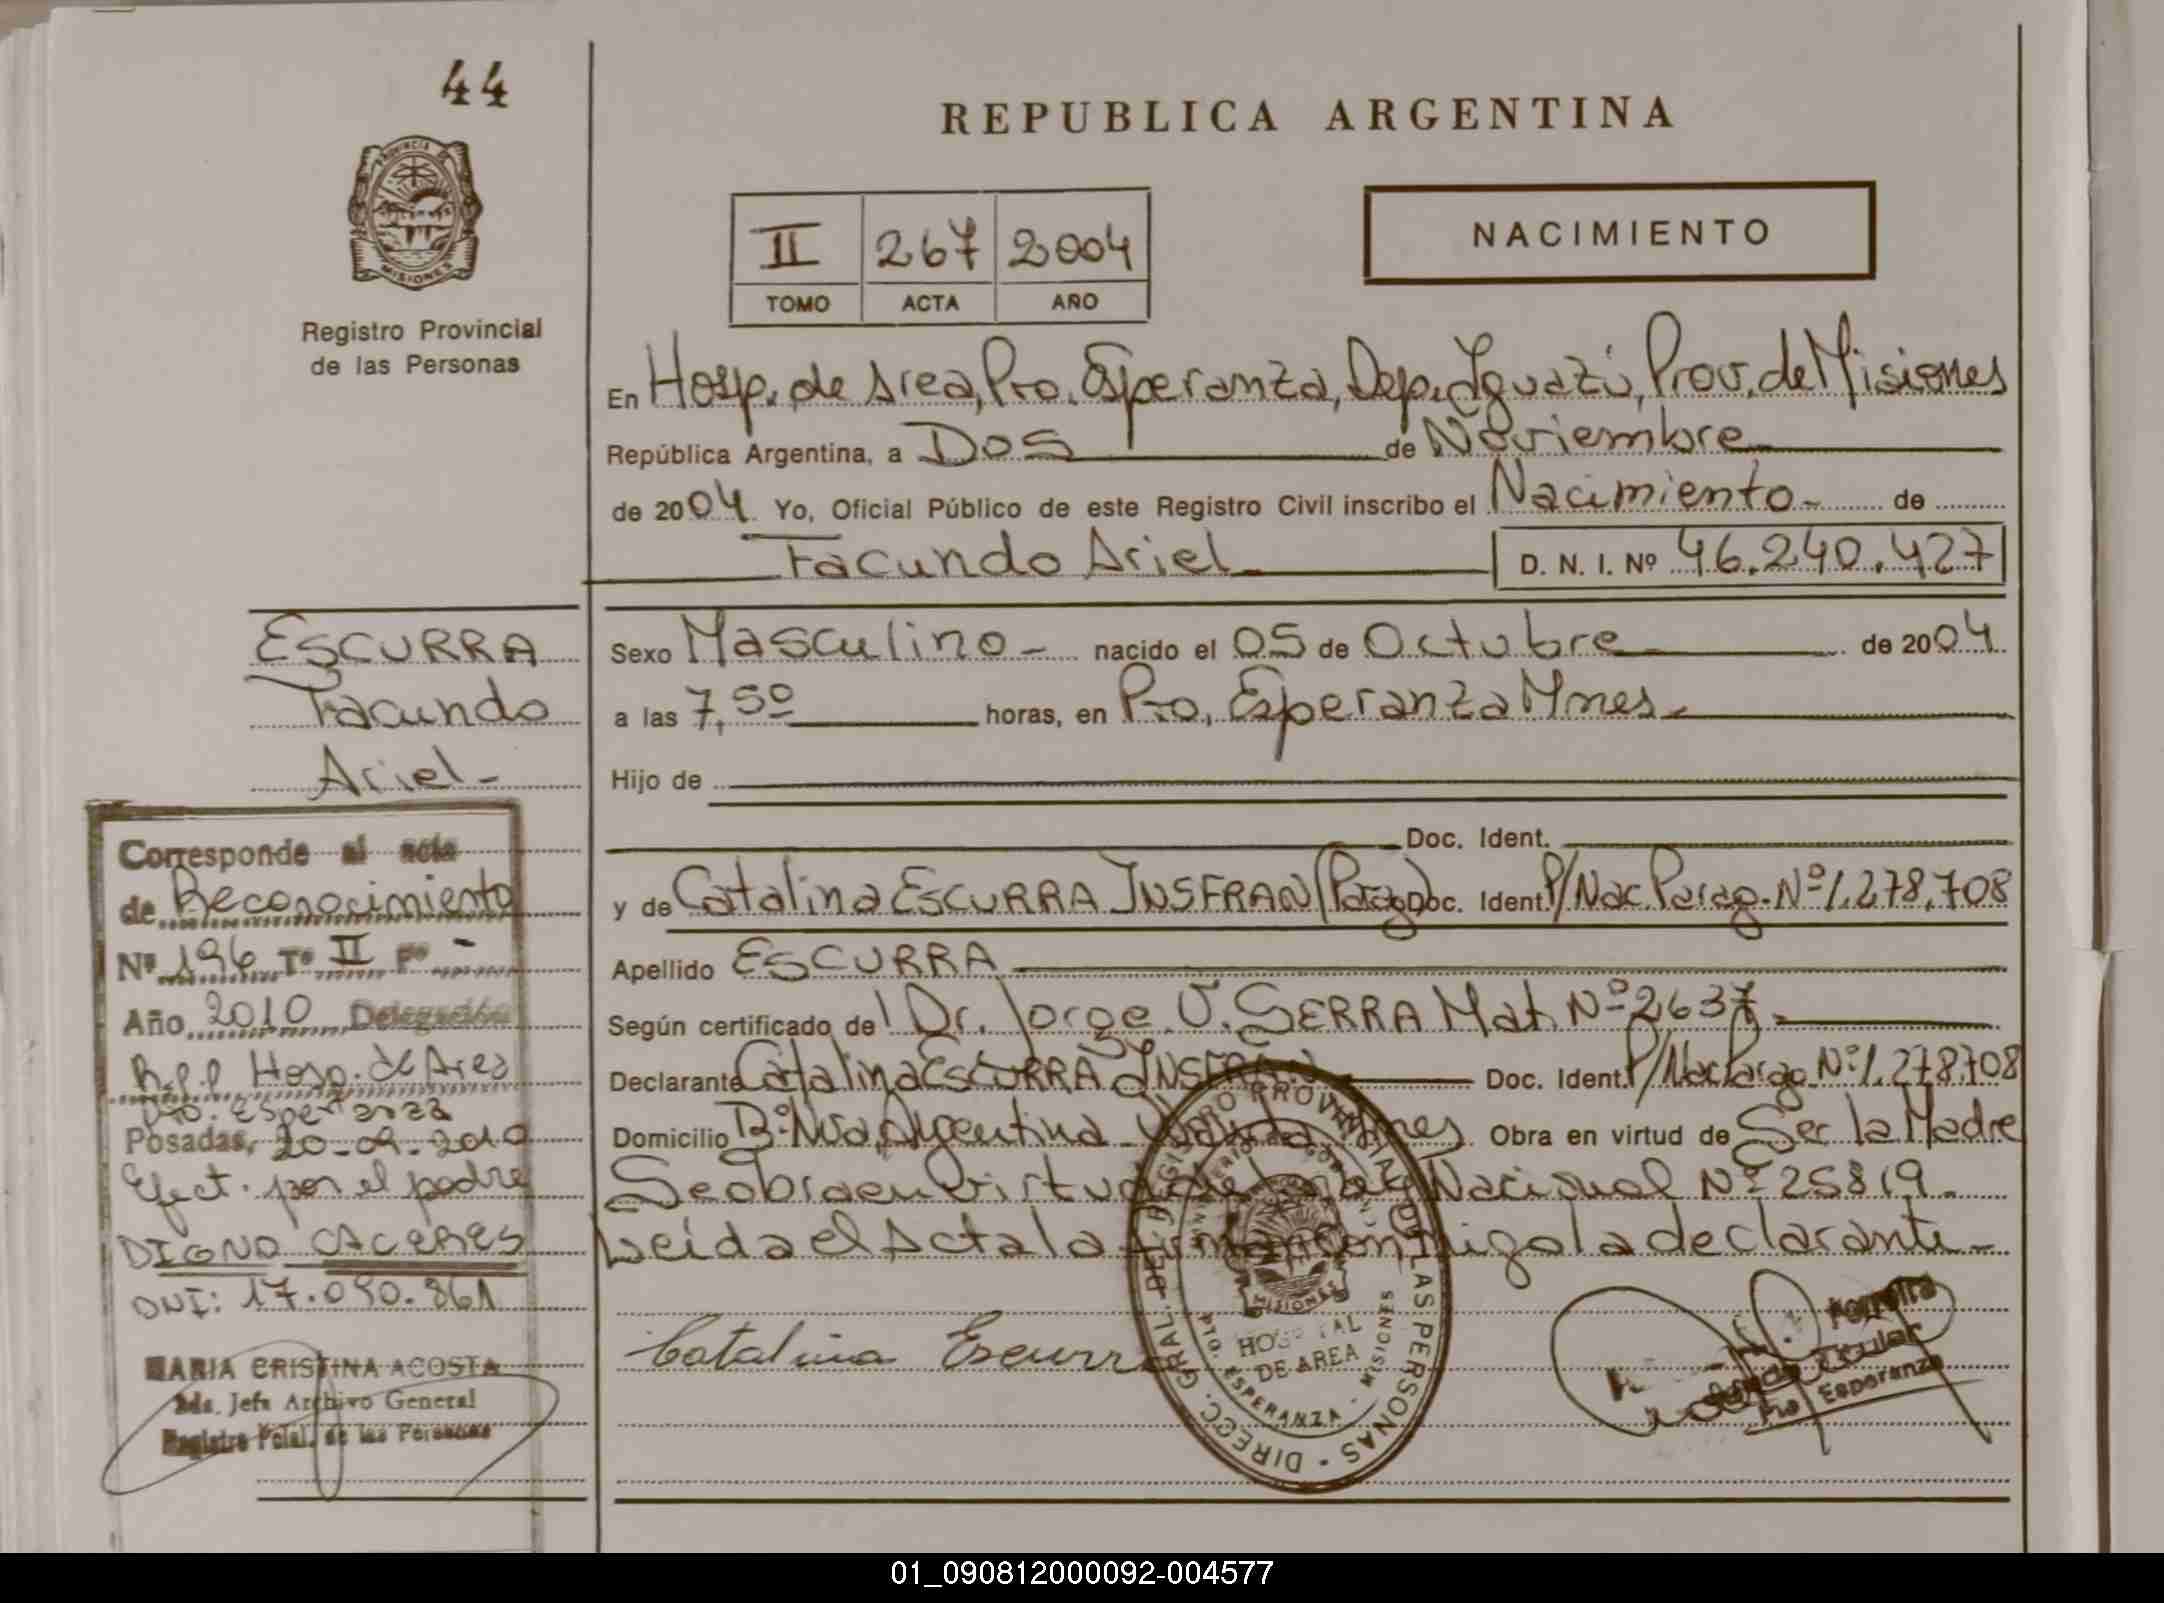 44
PROVINCIA DE
MISIONES
Registro Provincial
de las Personas
REPUBLICA ARGENTINA
II 267 2004
TOMO ACTA AÑO
NACIMIENTO
En Hosp. de Area, Pto. Esperanza, Dep. Iguazú, Prov. de Misiones
República Argentina, a Dos de Noviembre
de 2004 Yo, Oficial Público de este Registro Civil inscribo el Nacimiento - de
Facundo Ariel - D. N. I. Nº 46.240.427
ESCURRA
Facundo
Ariel -
Sexo Masculino - nacido el 05 de Octubre de 2004
a las 7,50 horas, en Pto. Esperanza Mnes.
Hijo de
Doc. Ident.
y de Catalina ESCURRA INSFRAN (Parag) Doc. Ident. P/Nac. Parag. Nº 1.278.708
Apellido ESCURRA
Según certificado de Dr. Jorge V. SERRA Mat. Nº 2637.
Declarante Catalina ESCURRA INSFRAN Doc. Ident. P/Nac Parag. Nº 1.278.708
Domicilio Bº Nva. Argentina Mnes. Obra en virtud de Ser la Madre
Se obra en virtud de Ley Nacional Nº 25819.
Leida el Acta la firma conmigo la declarante -
Catalina Escurra
Corresponde al acta
de Reconocimiento
Nº 196 Tº II Fº -
Año 2010 Delegación
R.P.P Hosp. de Area
Pto. Esperanza
Posadas, 20-09-2010
Efect. por el padre
DIGNO CACERES
DNI: 17.090.861
MARIA CRISTINA ACOSTA
2da. Jefa Archivo General
Registro Pcial. de las Personas
DIRECC. GRAL. DEL REGISTRO PROVINCIAL DE LAS PERSONAS
MINISTERIO DE GOBIERNO
MISIONES
HOSPITAL
DE AREA
PTO. ESPERANZA - MISIONES
Titular
Pto. Esperanza
01_090812000092-004577